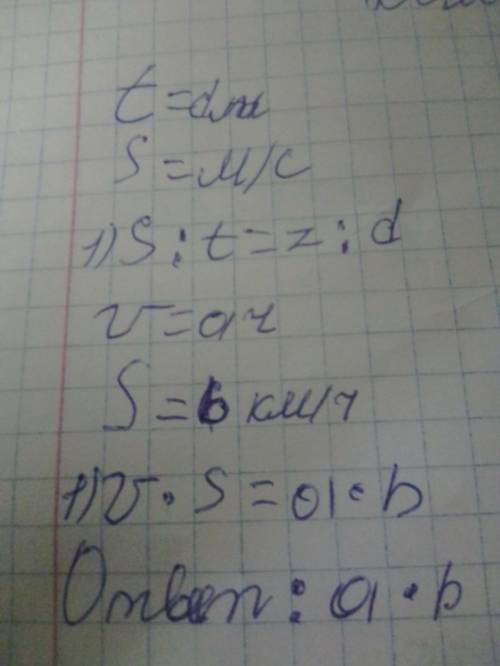 t = dм
S = м/с
1) S : t = z : d
v = a ч
S = b км/ч
1) v · S = a · b
Ответ: a · b